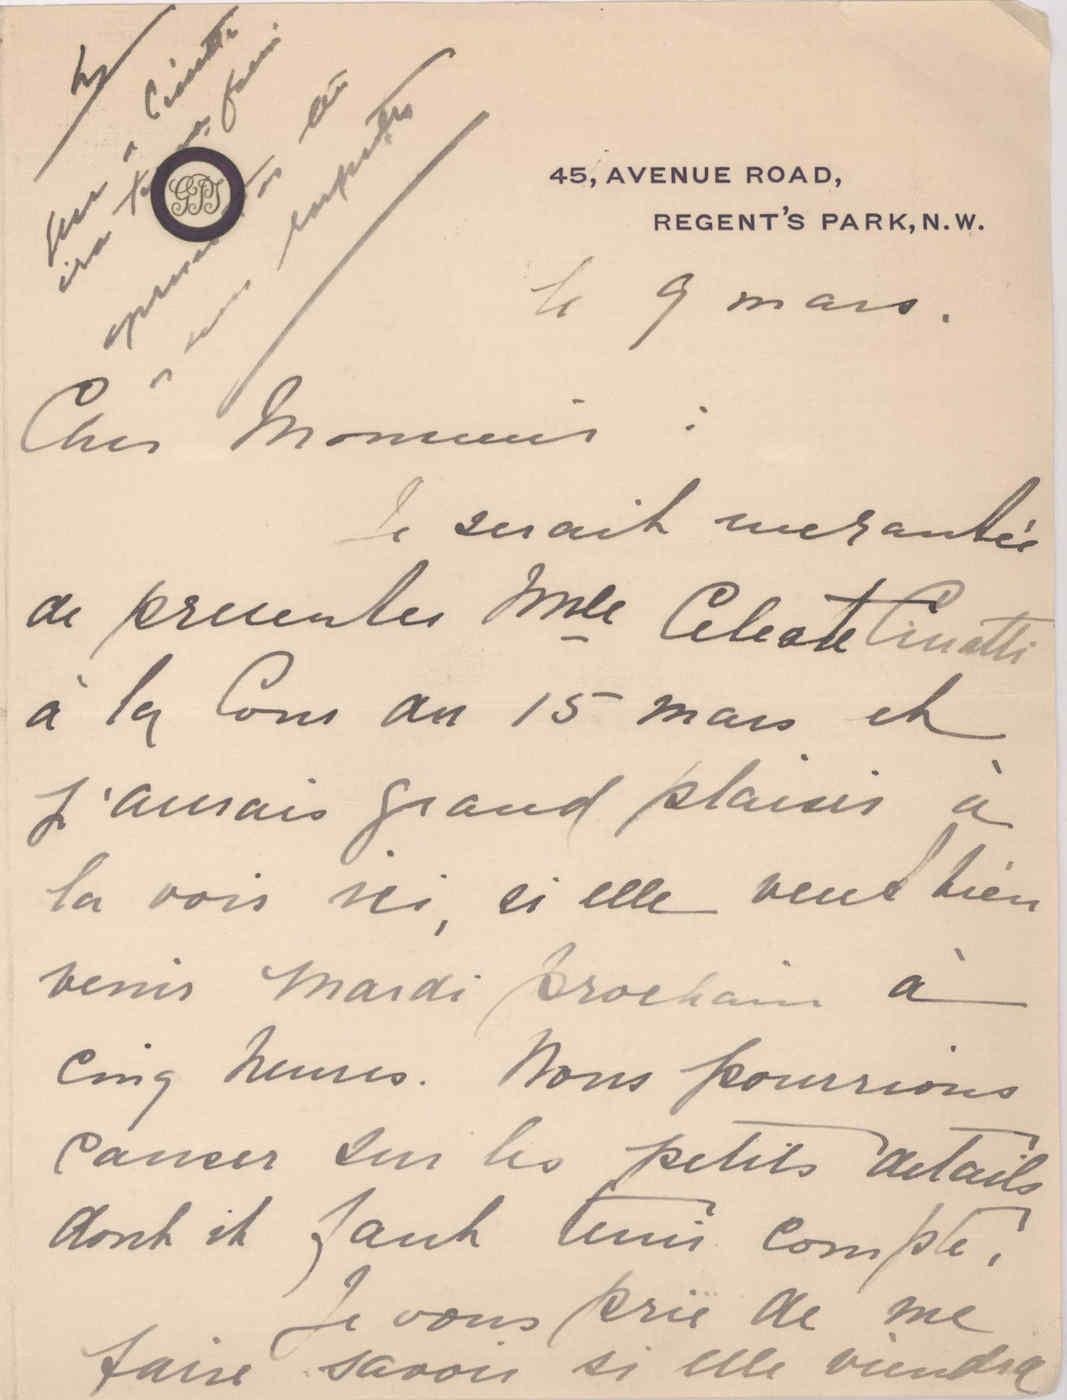 à Cinatti
ira
à
respeitos
GPJ
45, AVENUE ROAD,
REGENT'S PARK, N.W.
le 9 mars.
Cher Monsieur :
Je serait enchantée
de presenter Mlle Celeste Cinatti
à la Cour au 15 mars et
j'aurais grand plaisir à
la voir ici, si elle veut bien
venir Mardi prochain à
cinq heures. Nous pourrions
causer sur les petits details
dont it faut tenir compte.
Je vous prie de me
faire savoir si elle viendra